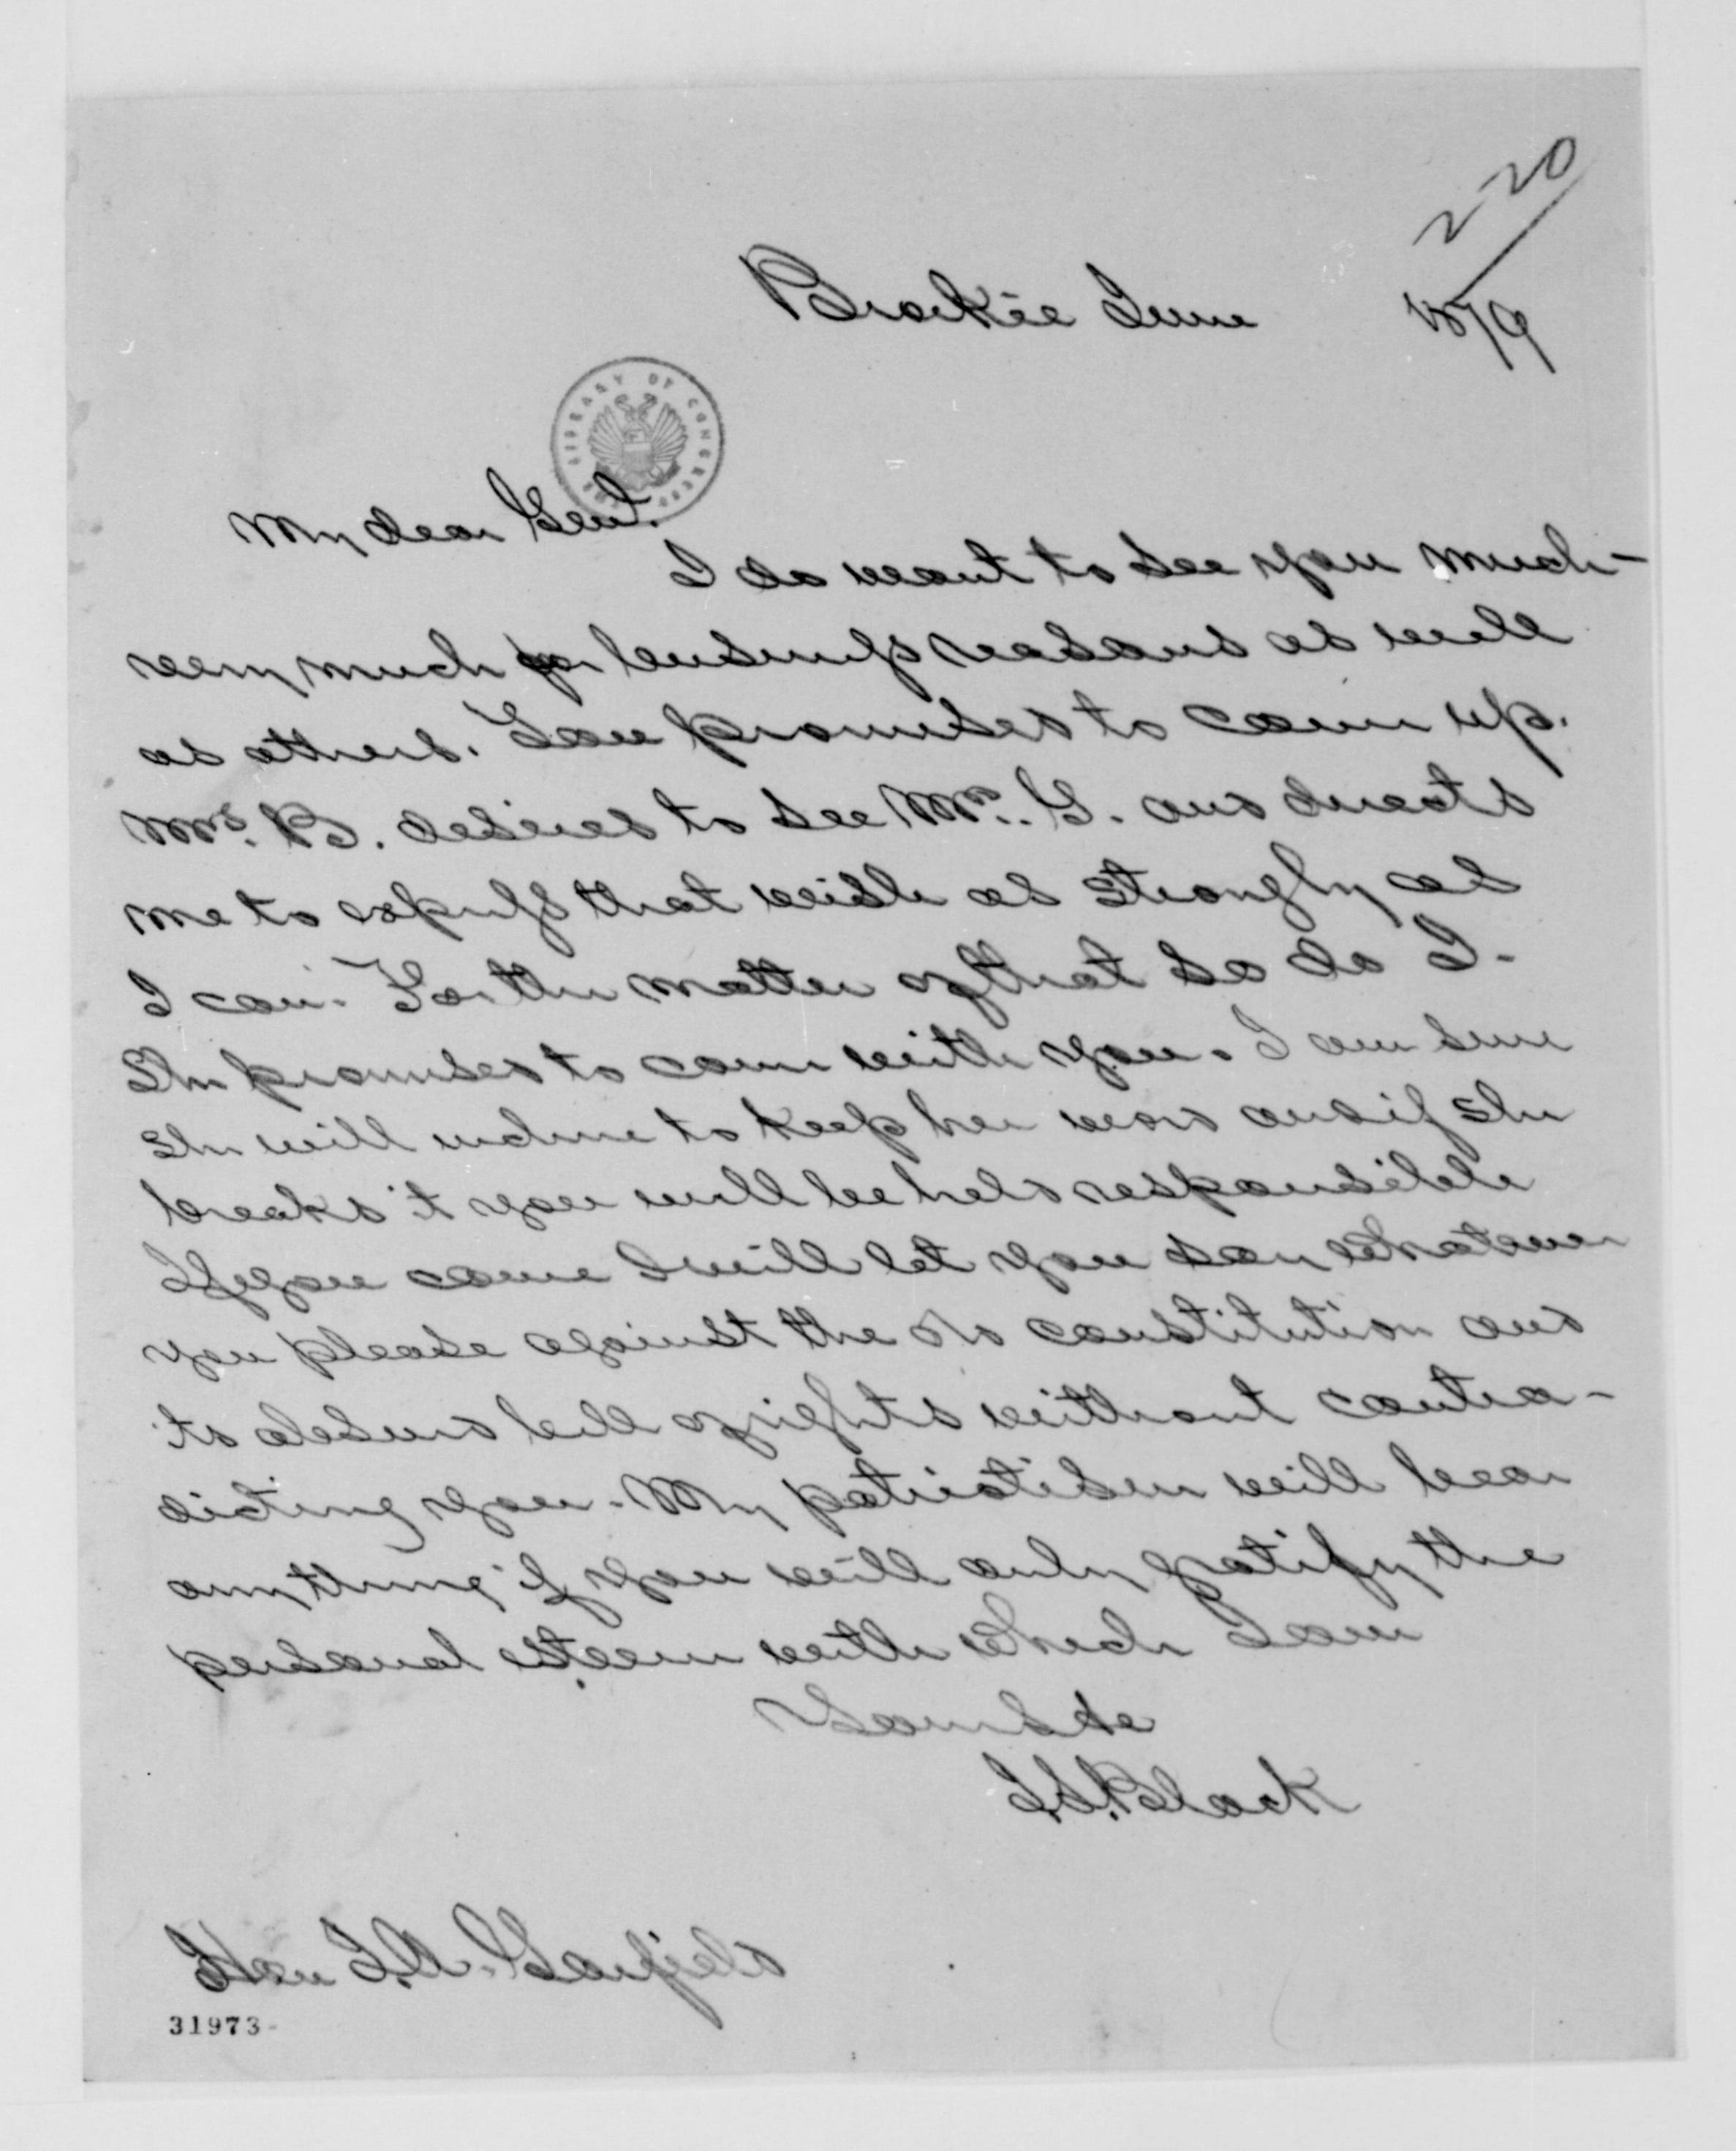 220
1879
Brockie June
THE LIBRARY OF CONGRESS
My dear Genl.
I do want to see you much—
very much for business reasons as well
as others. You promised to come up.
Mrs. B. desires to see Mrs. G. and directs
me to express that wish as strongly as
I can. For the matter of that so do I.
She promised to come with you. I am sure
she will incline to keep her word and if she
breaks it you will be held responsible
If you come I will let you say whatever
you please against the old constitution and
its absurd bill of rights without contra-
dicting you. My patriotism will bear
anything if you will only gratify the
personal esteem with which I am
Yours &c
J. S. Black
Hon J. A. Garfield
31973